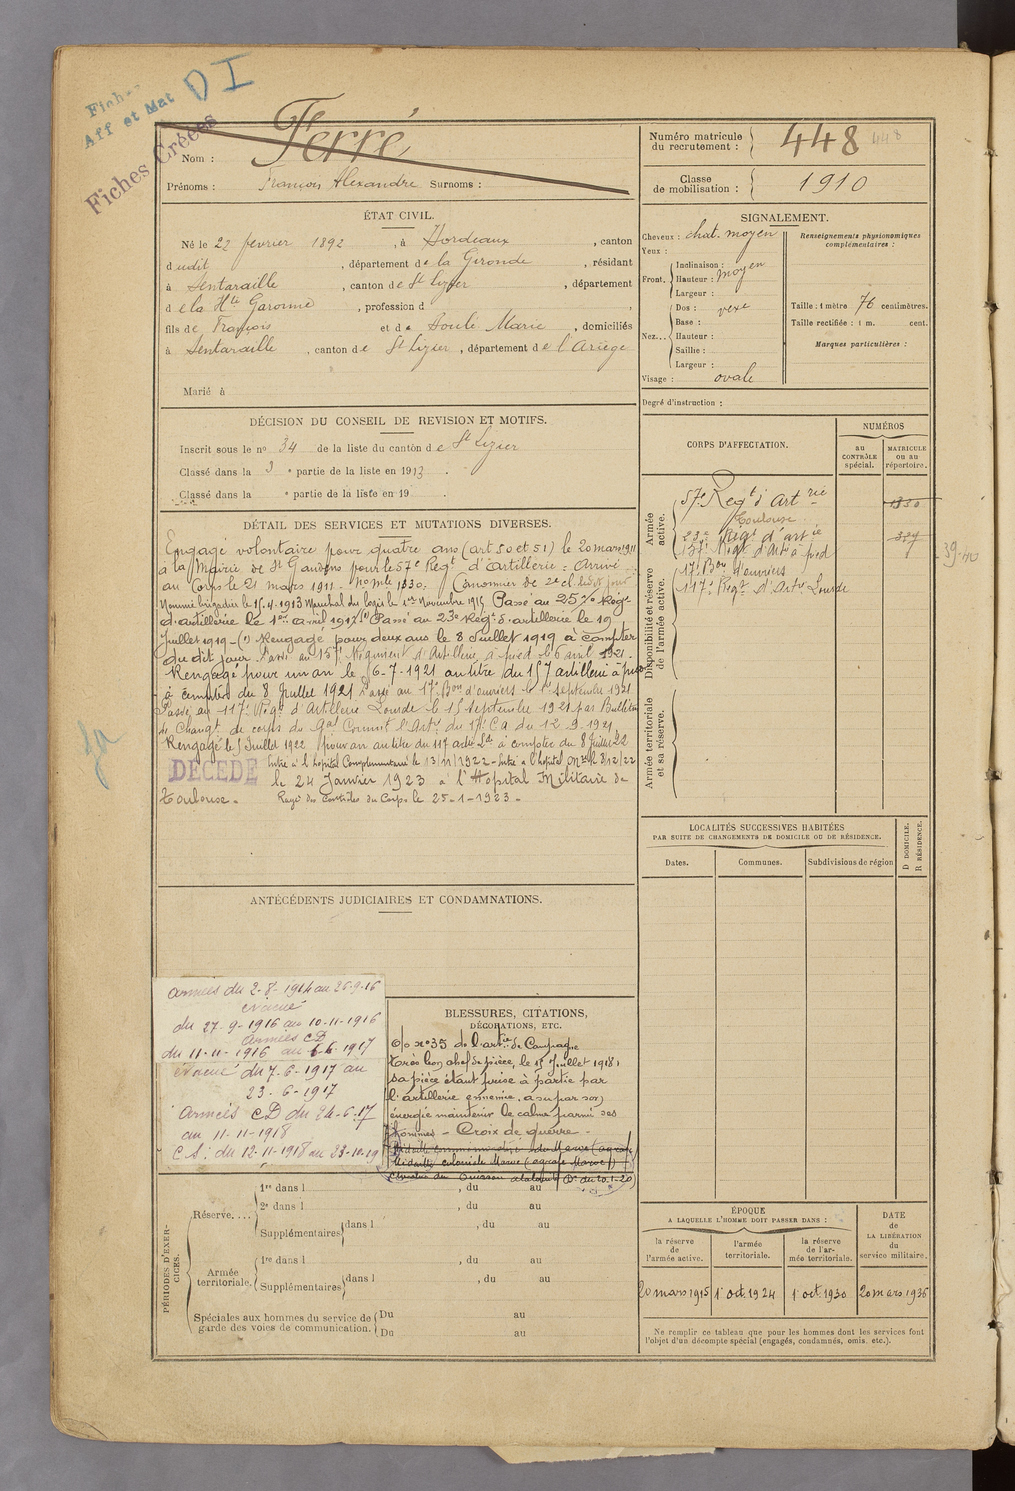 Fiches
Aff et Mat
DI
Fiches Créées
Nom : Ferré
Prénoms : François Alexandre Surnoms :
Numéro matricule du recrutement : 448
448
Classe de mobilisation : 1910
ÉTAT CIVIL.
Né le 22 février 1892, à Bordeaux, canton
dudit, département de la Gironde, résidant
à Sentaraille, canton de St Lizier, département
de la Hte Garonne, profession d
fils de François et de Soulé Marie, domiciliés
à Sentaraille, canton de St Lizier, département de l'Ariège
Marié à
SIGNALEMENT.
Cheveux : chat. moyen
Yeux :
Front. Inclinaison :
Hauteur : moyen
Largeur :
Nez... Dos : vexe
Base :
Hauteur :
Saillie :
Largeur :
Visage : ovale
Renseignements physionomiques complémentaires :
Taille : 1 mètre 76 centimètres.
Taille rectifiée : 1 m. cent.
Marques particulières :
Degré d'instruction :
DÉCISION DU CONSEIL DE REVISION ET MOTIFS.
Inscrit sous le no 34 de la liste du canton de St Lizier
Classé dans la 3e partie de la liste en 1913.
Classé dans la e partie de la liste en 19 .
DÉTAIL DES SERVICES ET MUTATIONS DIVERSES.
Engagé volontaire pour quatre ans (art 50 et 51) le 20 mars 1911
à la Mairie de St Gaudens pour le 57e Regt d'Artillerie = Arrivé
au Corps le 21 mars 1911. No mle 1330. Canonnier de 2e cl. dudit jour
Nommé brigadier le 15.4.1913 Maréchal des logis le 1er Novembre 1915 Passé au 25e Régt
d'artillerie le 1er avril 1917 (1) Passé au 23e Régt d'artillerie le 19
Juillet 1919 - (1) Rengagé pour deux ans le 8 Juillet 1919 à compter
du dit jour Passé au 157e Régiment d'Artillerie à pied le 6 avril 1921.
Rengagé pour un an le 6-7-1921 au titre du 157 artillerie à pied
à compter du 8 Juillet 1921 Passé au 17e Bon d'ouvriers le 1er septembre 1921
Passé au 117e Régt d'Artillerie Lourde le 15 septembre 1921 par Bulletin
de Changt de corps du Gal Commt l'Artie du 17e C.A du 12.9.1921
Rengagé le 5 Juillet 1922 pour 1 an au titre du 117 à compter du 8 Juillet 22
Entré à l'hopital Complémentaire le 13/11/1922 - Entré à l'hopital le 8/12/22
DÉCÉDÉ le 24 Janvier 1923 à l'Hopital Militaire de
Toulouse. Rayé des contrôles du Corps le 25-1-1923.
CORPS D'AFFECTATION.
NUMÉROS
au CONTRÔLE spécial.
MATRICULE ou au répertoire.
Armée active.
57e Regt d'Artrie 1330
Toulouse
23e Regt d'artie
157e Regt d'Art à pied
17e Bon d'ouvriers
117e Regt d'Artie Lourde
Disponibilité et réserve de l'armée active.
Armée territoriale et sa réserve.
LOCALITÉS SUCCESSIVES HABITÉES
PAR SUITE DE CHANGEMENTS DE DOMICILE OU DE RÉSIDENCE.
Dates.
Communes.
Subdivisions de région
D DOMICILE. R RÉSIDENCE.
ANTÉCÉDENTS JUDICIAIRES ET CONDAMNATIONS.
Armées du 2-8-1914 au 26-9-16
évacué
du 27-9-1916 au 10-11-1916
Armées CD
du 11-11-1916 au 6-6-1917
évacué du 7-6-1917 au
23-6-1917
Armées CD du 24-6-17
au 11-11-1918
C S : du 12-11-1918 au 23-10-19
BLESSURES, CITATIONS,
DÉCORATIONS, ETC.
O/o No 35 de l'artie de Campagne
Très bon chef de pièce, le 15 Juillet 1918,
sa pièce étant prise à partie par
l'artillerie ennemie, a su par son
énergie maintenir le calme parmi ses
hommes - Croix de guerre -
Médaille commémorative du Maroc (agrafe
Médaille coloniale Maroc (agrafe Maroc)
PÉRIODES D'EXERCICES.
Réserve....
1re dans l , du au
2e dans l , du au
Supplémentaires dans l , du au
Armée territoriale.
1re dans l , du au
Supplémentaires dans l , du au
Spéciales aux hommes du service de garde des voies de communication.
Du au
Du au
ÉPOQUE
A LAQUELLE L'HOMME DOIT PASSER DANS :
la réserve de l'armée active.
l'armée territoriale.
la réserve de l'armée territoriale.
DATE de LA LIBÉRATION du service militaire.
20 mars 1915
1er oct. 1924
1er oct. 1930
20 mars 1936
Ne remplir ce tableau que pour les hommes dont les services font
l'objet d'un décompte spécial (engagés, condamnés, omis. etc.).